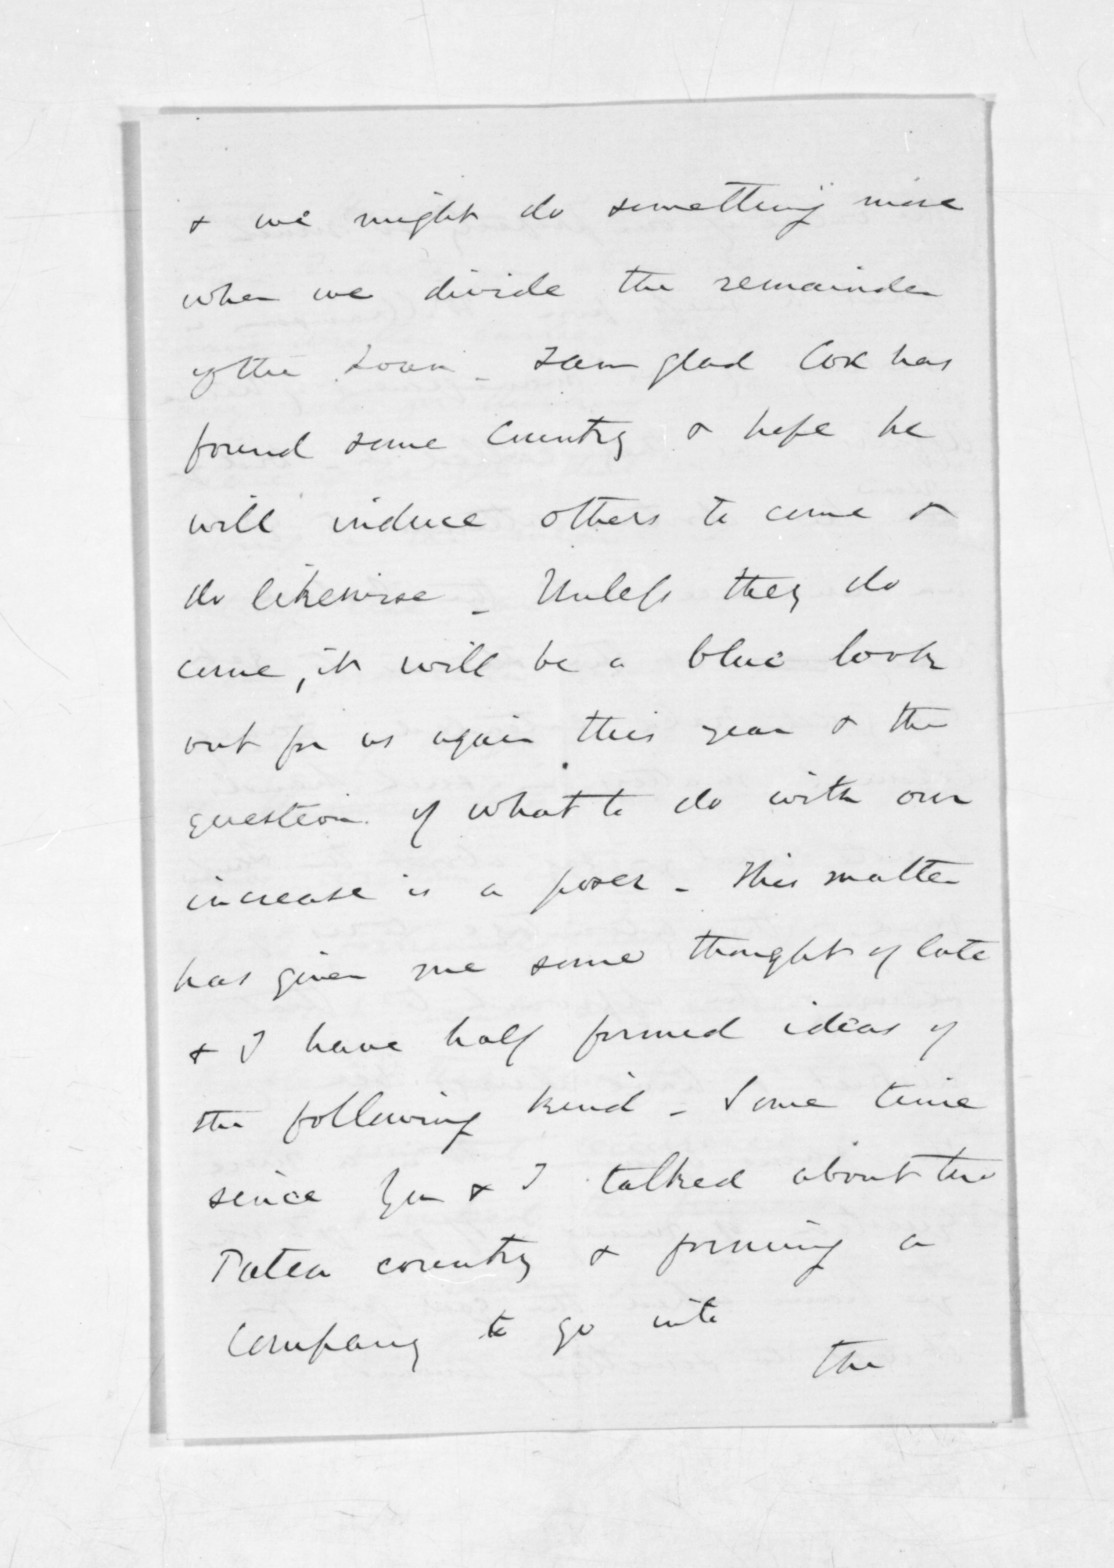 & we might do something more
when we divide the remainder
of the Loan. I am glad Cox has
found some Country & hope he
will induce others to come &
do likewise _ Unless they do
come, it will be a blue look
out for us again this year & the
question of what to do with our
increase is a poser _ This matter
has given me some thought of late
& I have half formed ideas of
the following kind _ Some time
since you & I talked about the
Patea country & forming a
Company to go into
the